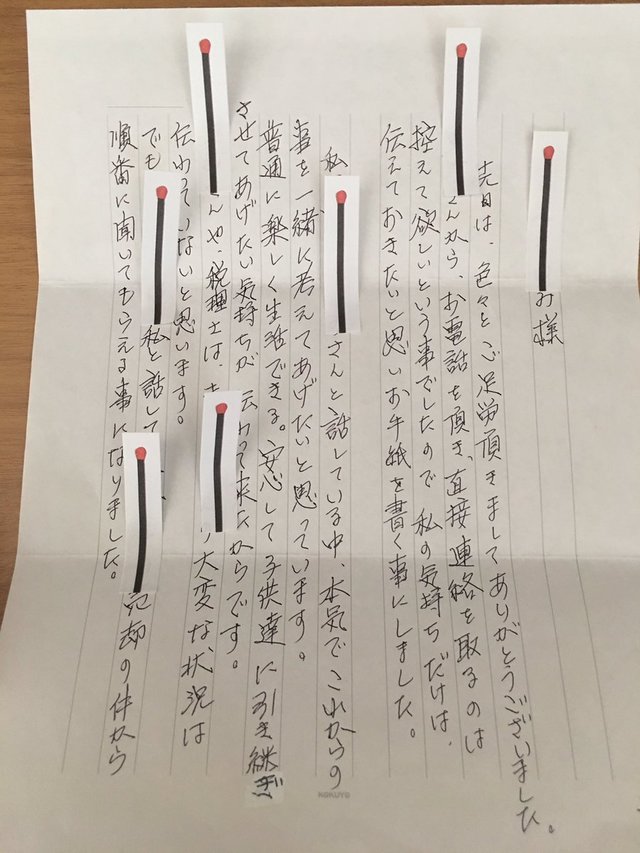 み様
先日は、色々とご足労頂きましてありがとうございました。
さんから、お電話を頂き、直接連絡を取るのは
控えて欲しいという事でしたので私の気持ちだけは、
伝えておきたいと思いお手紙を書く事にしました。
私 さんと話している中、本気でこれからの
事を一緒に考えてあげたいと思っています。
普通に楽しく生活できる。安心して子供達に引き継ぎ
させてあげたい気持ちが 伝わって来たからです。
んや、税理士は、 大変な状況は
伝わっていないと思います。
でも 私と話して 却の件から
順番に聞いてもらえる事になりました。
KOKUYO